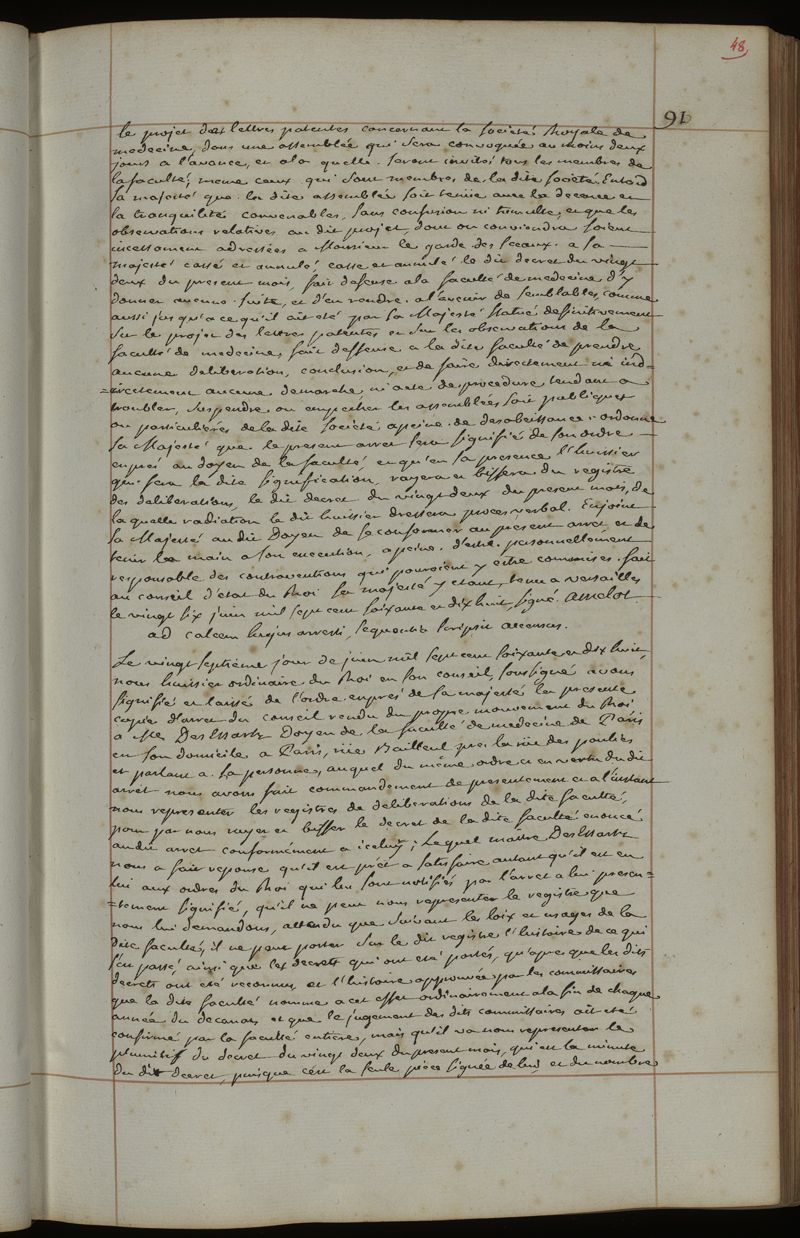 48
91
le projet des lettres patentes concernant la societé Royale de
medecine, dans une assemblée qui sera convoquée au moins deux
jours a l'avance, et a la quelle seront invités tous les membres de
la faculté, meme ceux qui sont membres de la dite societé. Entend
sa majesté que la dite assemblée soit tenue avec la decence et
la tranquilité convenables, sans confusion ni tumulte, et que les
observations relatives au dit projet, dont on conviendra soient
incessament adressées a Monsieur le garde des sceaux. a sa
majesté cassé et annulé casse et annulle le dit decret du vingt
deux du present mois, fait defense a la faculté de medecine d'y
donner aucune suite, et d'en rendre a l'avenir de semblables, comme
aussi jusqu'a ce qu'il ait eté par sa Majesté statué definitivement
sur le projet des lettres patentes et sur les observations de la
faculté de medecine, fait deffense a la dite faculté de prendre
aucune deliberation, conclusion, et de faire directement ni ind-
=irectement aucune demarche, ni acte de procedure tendant a
troubler, suspendre ou empecher les assemblées soit publiques
ou particulieres de la dite societé a peine de desobeissance: ordonne
sa Majesté que le present arret sera signifié de son ordre
exprés au doyen de la faculté et qu'en sa presence l'huissier
qui fera la dite signification, rayera et biffera du registre
des deliberations, le dit decret du vingt deux du present mois, de
la quelle radiation le dit huissier dressera procès verbal. Enjoint
sa Majesté au dit Doyen de se conformer au present arret et de
tenir la main a son execution, a peine d'estre personnellement
responsable des contraventions qui pouroient y estre commises. fait
au conseil d'etat du Roi sa majesté y etant, tenu a versailles
le vingt six juin mil sept cent soixante et dix huit, signé. Amelot
ad calcem hujus arresti, sequentia scripsit accensus.
Le vingt septième jour de juin mil sept cent soixante et dix huit,
nous huissier ordinaire du Roi en son conseil, soussigné avons
signifié et laissé de l'ordre exprés de sa majesté la presente
copie d'arret du conseil rendu du propre mouvement du Roi
a Me. Des Essartz Doyen de la faculté de medecine de Paris
en son domicile a Paris, rüe Bailleul prez la rüe des poulies
et parlant a sa personne, auquel du même ordre et en vertu du dit
arrêt nous avons fait commandement de presentement et a l'instant
nous representer les registres de deliberations de la dite faculté,
pour par nous rayer et biffer le decret de la dite faculté enoncé
audit arret conformément a iceluy; Lequel maître Des Essartz
nous a fait reponse qu'il est prêt a satisfaire autant qu'il est en
lui aux ordres du Roi qui lui sont notifiés par l'arret a lui presen=
=tement signifié, qu'il ne peut nous representer le registre que
nous lui demandons, attendu que suivant les loix et usages de la
dite faculté, il ne peut porter sur le dit registre l'histoire de ce qui
s'est passé, ainsi que les decrets qui ont eté portés, qu'apres que les dits
decrets ont eté reconnus et l'histoire approuvée par les commissaires
que la dite faculté nomme a cet effet ordinairement a la fin de chaque
année du decanat, et que le jugement des dits commissaires ait eté
confirmé par la faculté entiere, mais qu'il va nous representer le
plumitif du decret du vingt deux du present mois, qui est la minute
du dit decret, puisque c'est la seule pièce signée de lui, et du nombre